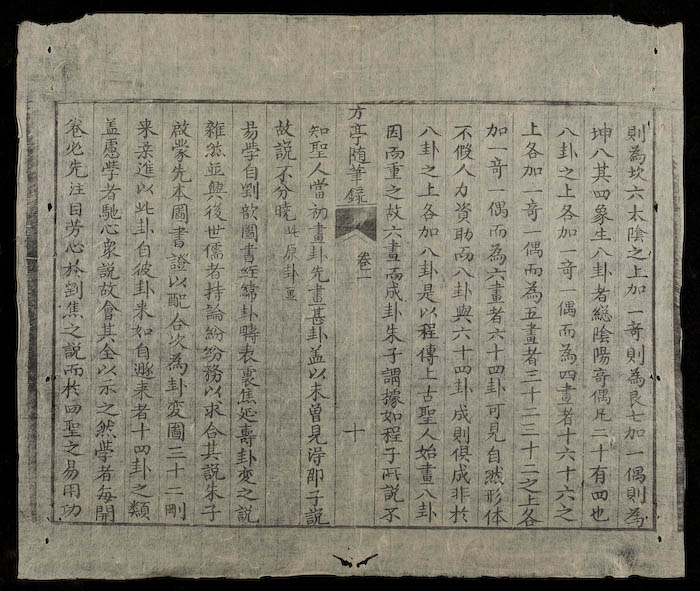 則為坎六太陰之上加一奇則為艮七加一偶則為
坤八其四象生八卦者緫陰陽奇偶凡二十有四也
八卦之上各加一奇一偶而為四畫者十六十六之
上各加一奇一偶而為五畫者三十二三十二之上各
加一奇一偶而為六畫者六十四卦可見自然形体
不假人力資助而八卦與六十四卦成則俱成非於
八卦之上各加八卦是以程傳上古聖人始畫八卦
因而重之故六畫而成卦朱子謂據如程子所說不
方亭隨筆録
卷二
十
知聖人當初畫卦先畫甚卦盖以未曾見得邵子說
故說不分曉 此原卦畫
易學自劉歆圖書經緯卦疇表裏焦延壽卦變之說
雜然並興後世儒者持論紛紛務以求合其說朱子
啟蒙先本圖書證以配合次為卦変圖三十二剛
来柔進以此卦自彼卦来如自遯来者十四卦之類
盖慮學者馳心衆說故會其全以示之然學者每開
卷必先注目劳心於劉焦之說而於四聖之易用功